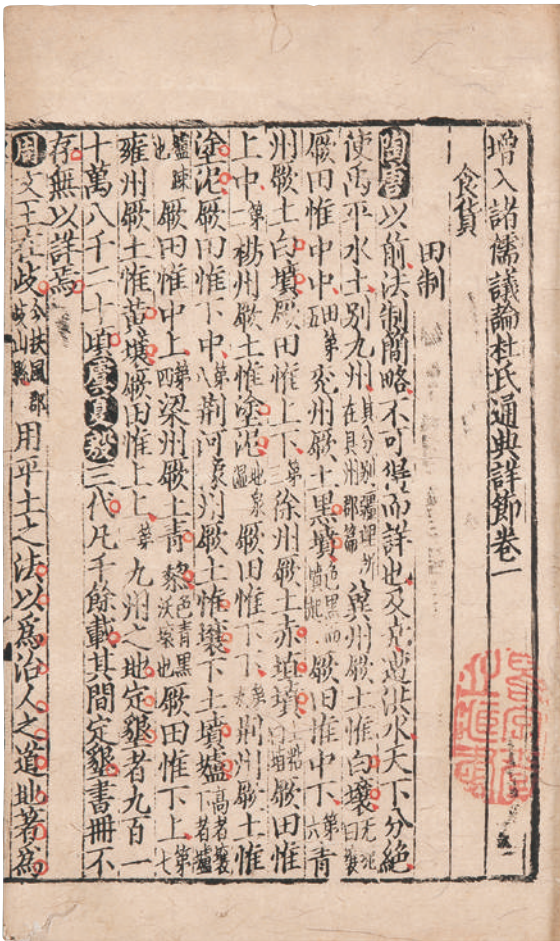 增入諸儒議論杜氏通典詳節卷一
食貨
田制
陶唐以前法制簡略不可得而詳也及堯遭洪水天下分絕
使禹平水土別九州其分別疆理所在具州郡篇冀州厥土惟白壤無塊曰壤
厥田惟中中田第五兖州厥土黑墳色黑而墳起厥田惟中下第六青
州厥土白墳厥田惟上下第三徐州厥土赤埴墳土黏曰埴厥田惟
上中第二楊州厥土惟塗泥地泉濕厥田惟下下第九荆州厥土惟
塗泥厥田惟下中第八荆河豫州厥土惟壤下土墳壚高者壤下者壚
壚踈也厥田惟中上第四梁州厥土青黎色青黑沃壤也厥田惟下上第七
雍州厥土惟黄壤厥田惟上上第一九州之地定墾者九百一
十萬八千二十頃虞夏殷三代凡千餘載其間定墾書冊不
存無以詳焉
周文王在岐今扶風郡岐山縣用平土之法以爲治人之道地著爲